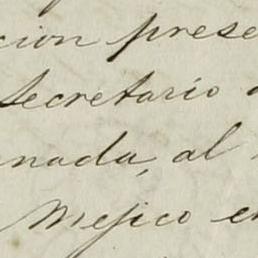 cion prese
Secretario
nada, al
Mejico en